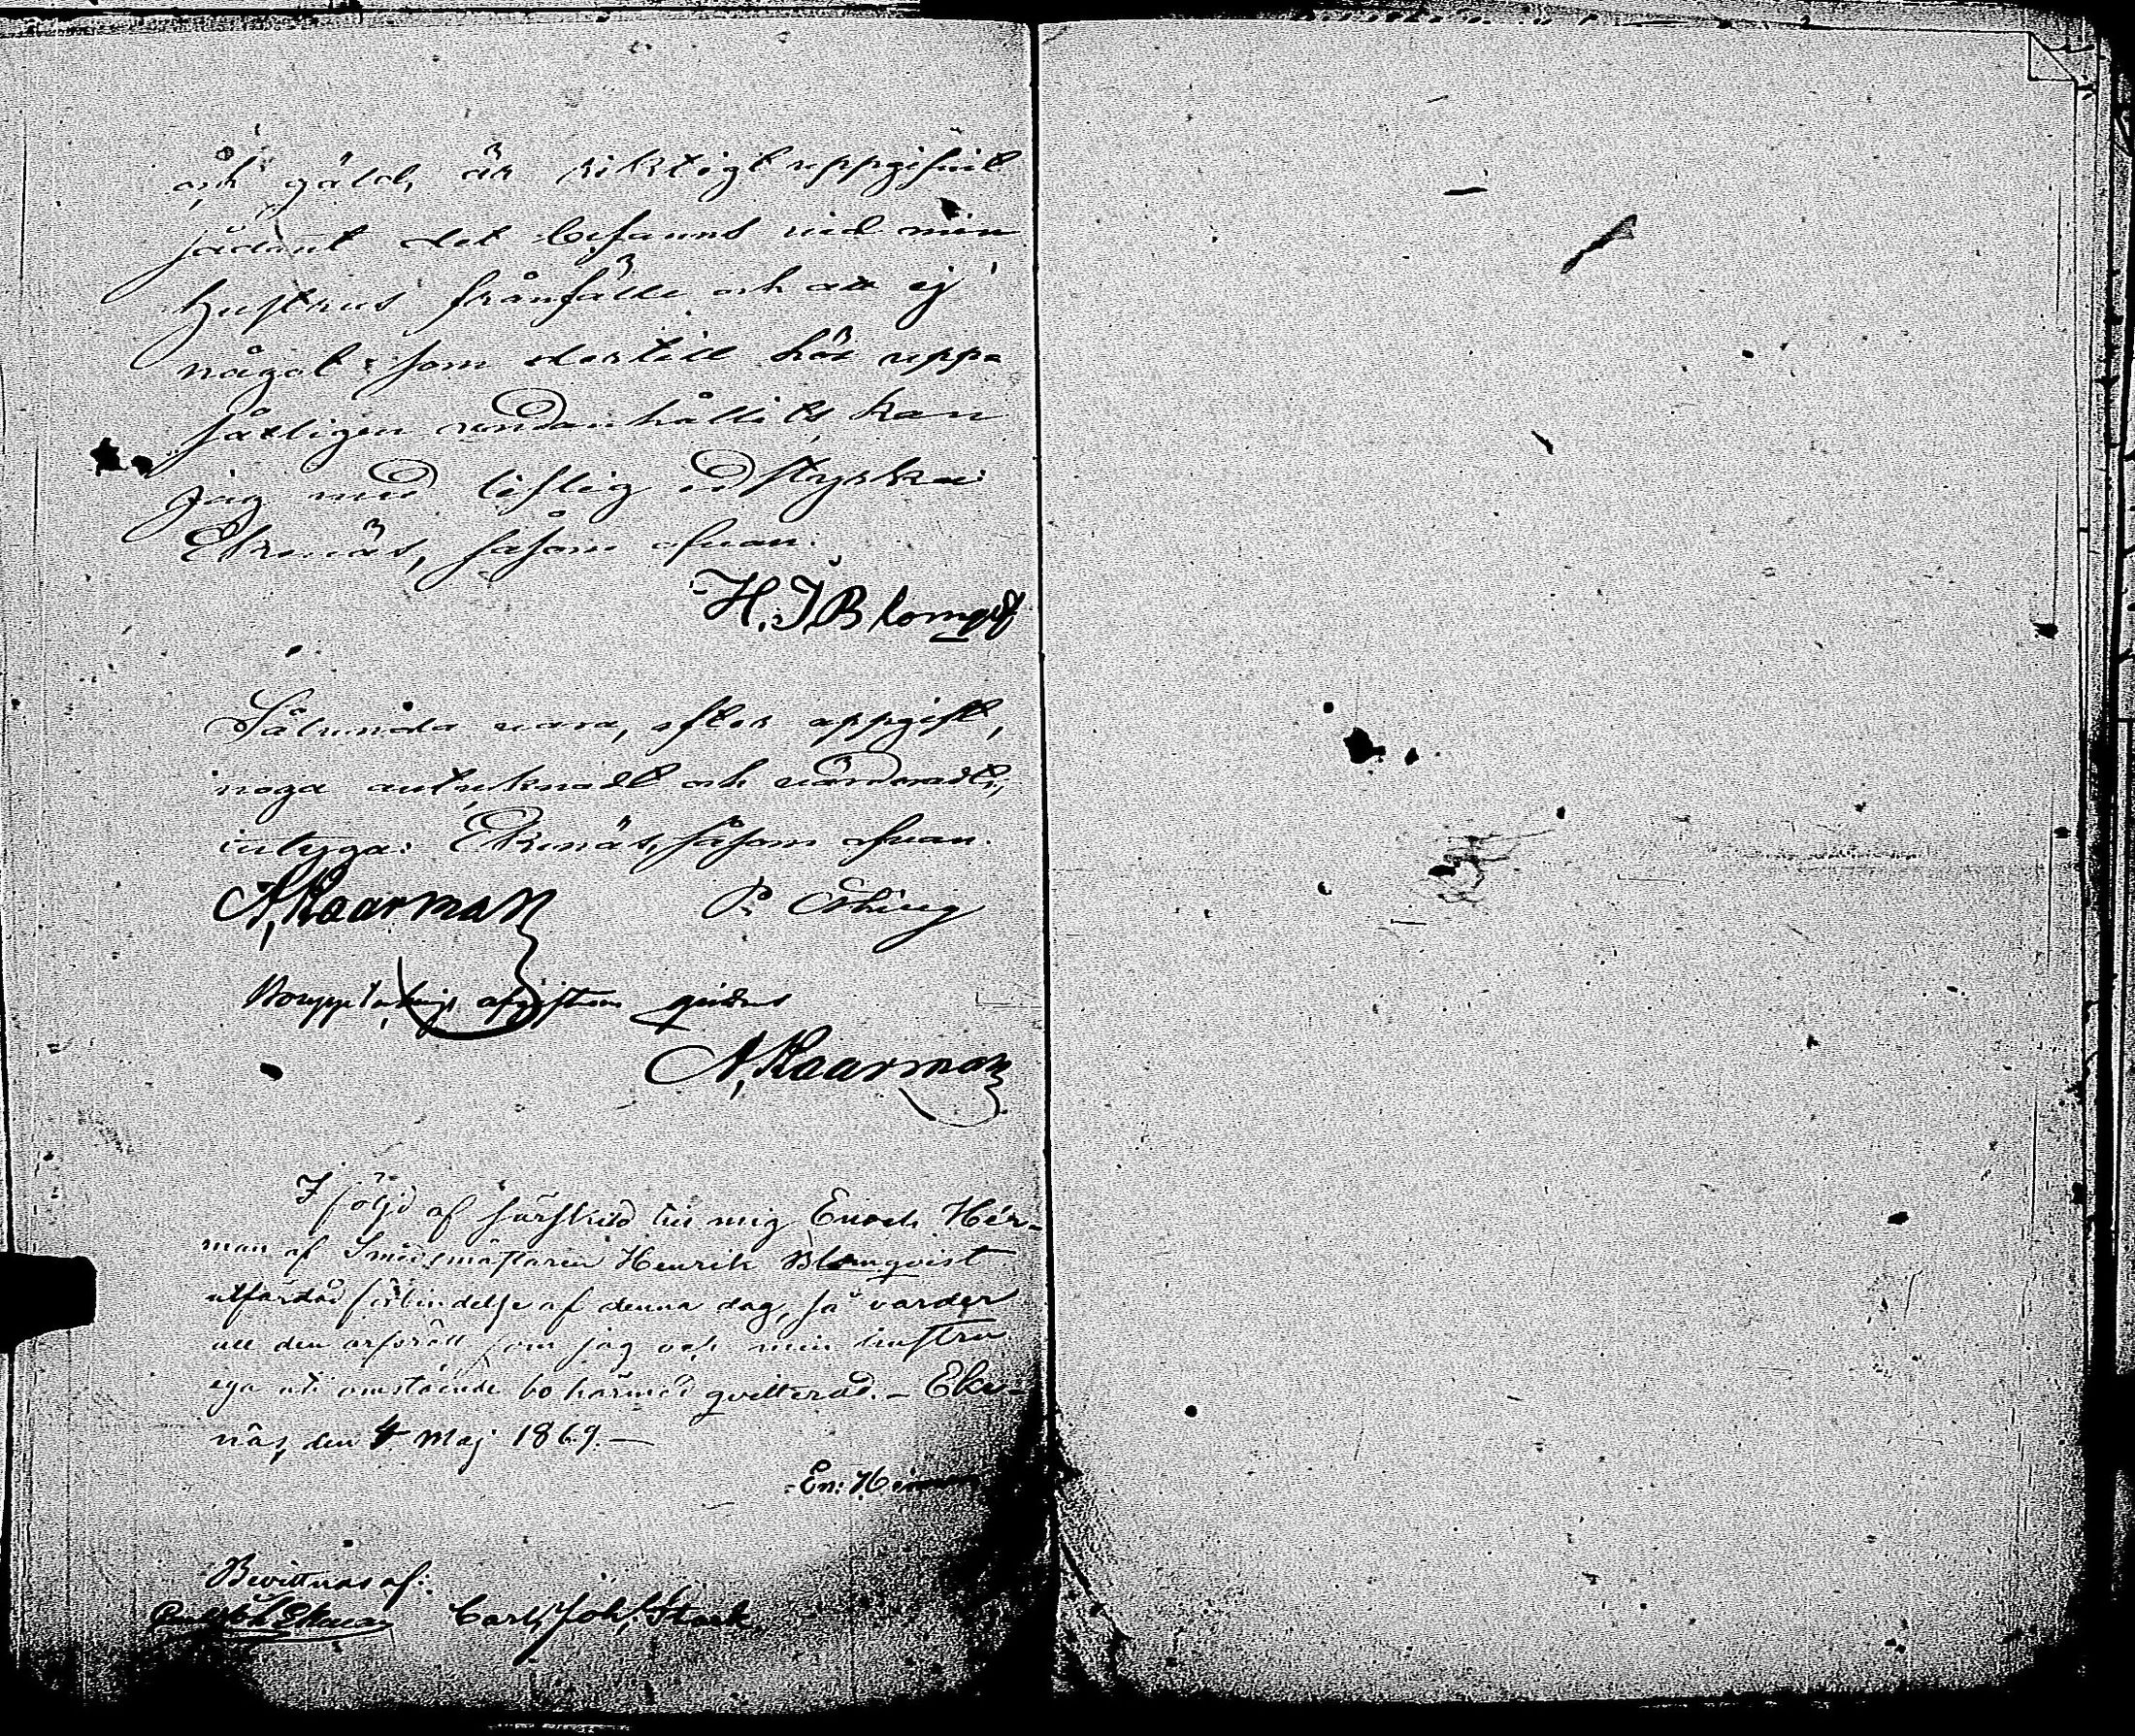 och gäld, är riktigt uppgifvit
sådant det befanns vid min
hustrus frånfälle och att ej
något som dertill hör upp=
såtligen undanhållits kan
jag med liflig ed styrka
Ekenäs, såsom ofvan.
H. J Blomqvist
Sålunda vara, efter uppgift,
noga antecknadt och värderadt,
intyga: Ekenäs, såsom ofvan.
A, Kaarman P.
afgiften qvitteras
A, Kaarman
I följd af särskild till mig Enoch Hér-
man af Smedsmästaren Henrik Blomqvist
utfärdad förbindelse af denna dag, så varder
all den arfsrätt som jag och min hustru
ega uti omstående bo härmed qvitterad. - Eke-
näs, den 4 Maj 1869. -
En: Hérman
Bevittnas af:
Carl Joh: Stark